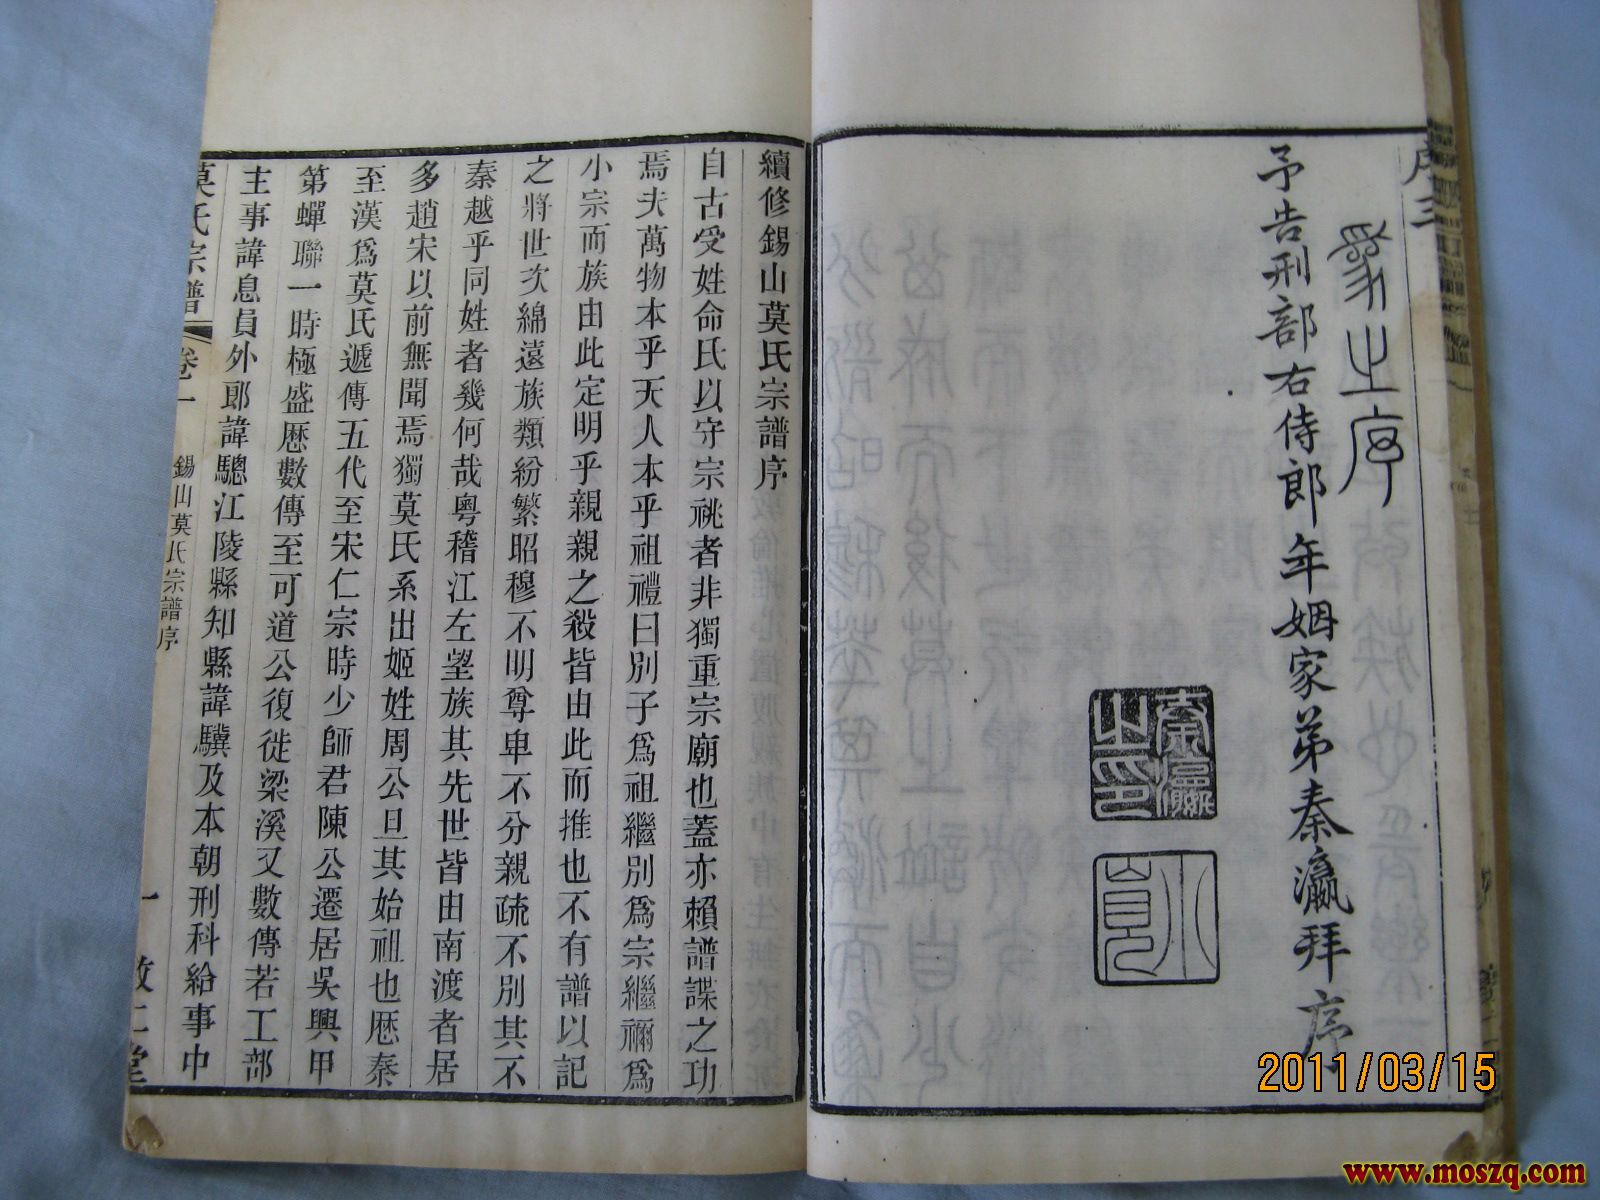 序三
爲之序
予告刑部右侍郎年姻家弟秦瀛拜序
秦瀛之印
小峴
續修錫山莫氏宗譜序
自古受姓命氏以守宗祧者非獨重宗廟也蓋亦賴譜諜之功
焉夫萬物本乎天人本乎祖禮曰別子爲祖繼別爲宗繼禰爲
小宗而族由此定明乎親親之殺皆由此而推也不有譜以記
之將世次綿遠族類紛繁昭穆不明尊卑不分親疏不別其不
秦越乎同姓者幾何哉粵稽江左望族其先世皆由南渡者居
多趙宋以前無聞焉獨莫氏系出姬姓周公旦其始祖也歷秦
至漢爲莫氏遞傳五代至宋仁宗時少師君陳公遷居吳興甲
第蟬聯一時極盛歷數傳至可道公復徙梁溪又數傳若工部
主事諱息員外郎諱驄江陵縣知縣諱驥及本朝刑科給事中
莫氏宗譜
卷一
錫山莫氏宗譜序
一
敦仁堂
2011/03/15
www.moszq.com